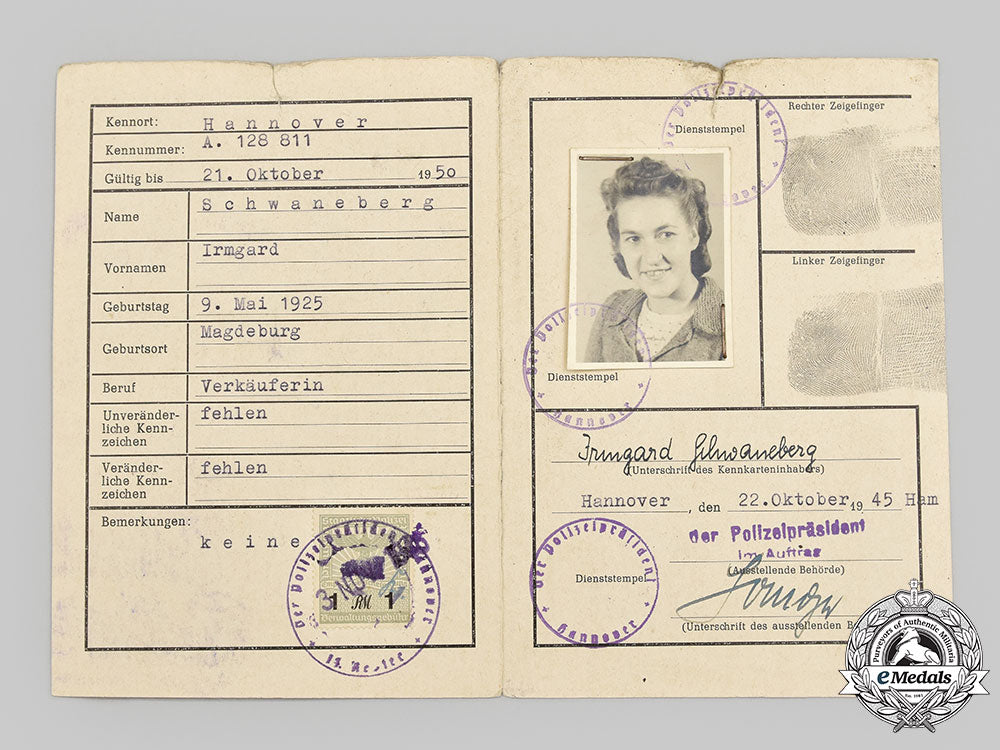 Kennort: Hannover
Kennummer: A. 128 811
Gültig bis 21. Oktober 1950
Name Schwaneberg
Vornamen Irmgard
Geburtstag 9. Mai 1925
Geburtsort Magdeburg
Beruf Verkäuferin
Unveränder-
liche Kenn-
zeichen fehlen
Veränder-
liche Kenn-
zeichen fehlen
Bemerkungen:
keine
Der Polizeipräsident Hannover
1 RM 1
Verwaltungsgebühr
Dienststempel
Der Polizeipräsident
Hannover
Rechter Zeigefinger
Linker Zeigefinger
Der Polizeipräsident
Dienststempel
Hannover
Irmgard Schwaneberg
(Unterschrift des Kennkarteninhabers)
Hannover, den 22.Oktober 1945 Ham
der Polizeipräsident
Im Auftrag
(Ausstellende Behörde)
Der Polizeipräsident
Dienststempel
Hannover
(Unterschrift des ausstellenden
Purveyors of Authentic Militaria
eMedals